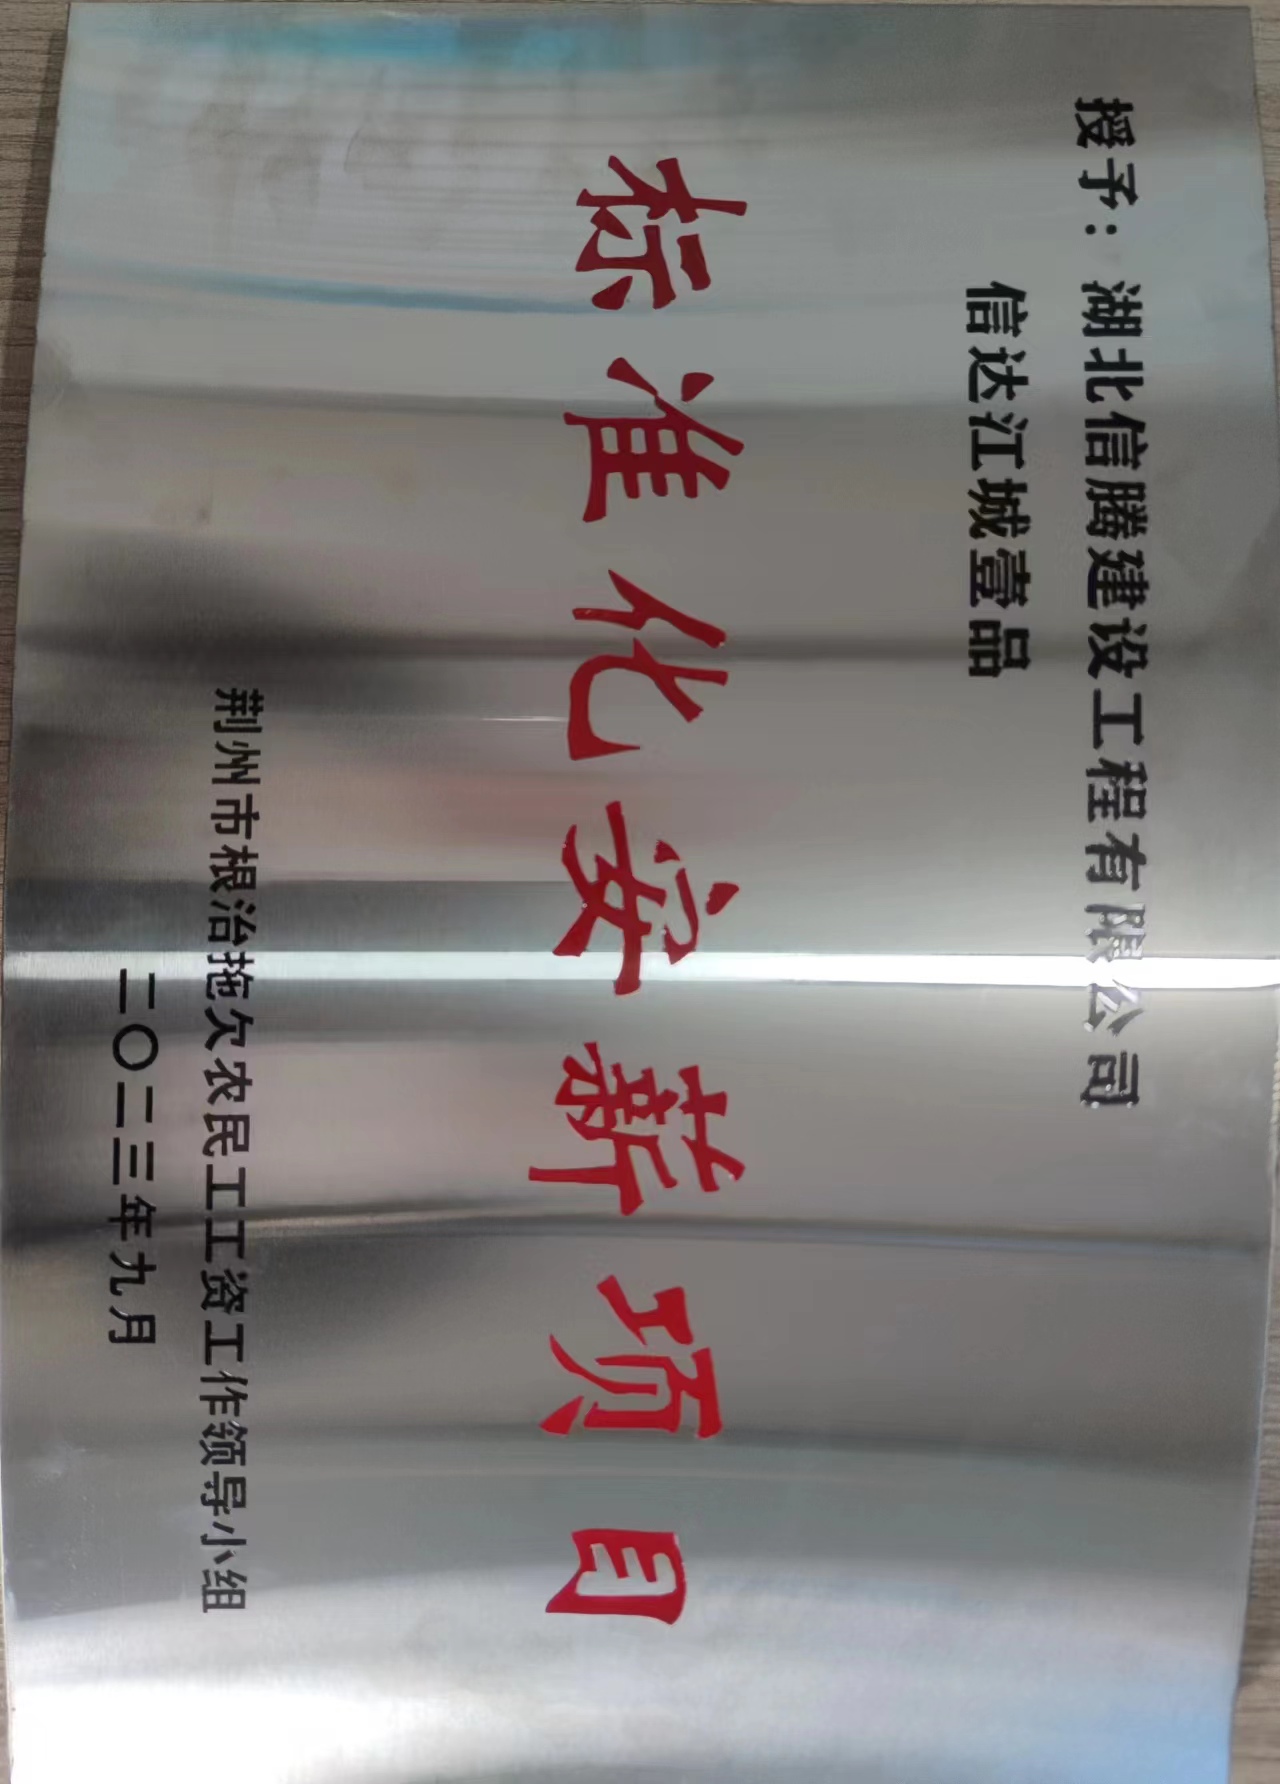 授予：湖北信腾建设工程有限公司
信达江城壹品
标准化安薪项目
荆州市根治拖欠农民工工资工作领导小组
二〇二三年九月